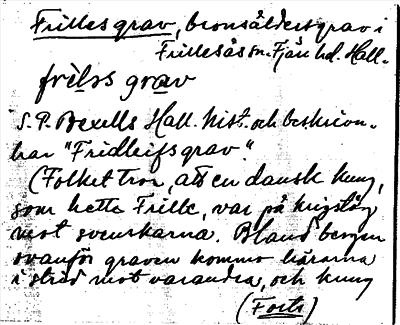 Frilles grav, bronsåldersgrav i
Frillesås sn. Fjäre hd. Hall.
frìlɔs grav
i S. P. Bexells Hall. hist. och beskrivn.
har "Fridleifsgrav."
(Folket tror, att en dansk kung,
som hette Frille, var på krigståg
mot svenskarna. Bland bergen
ovanför graven kommo härarna
i strid mot varandra, och kung
(Forts)